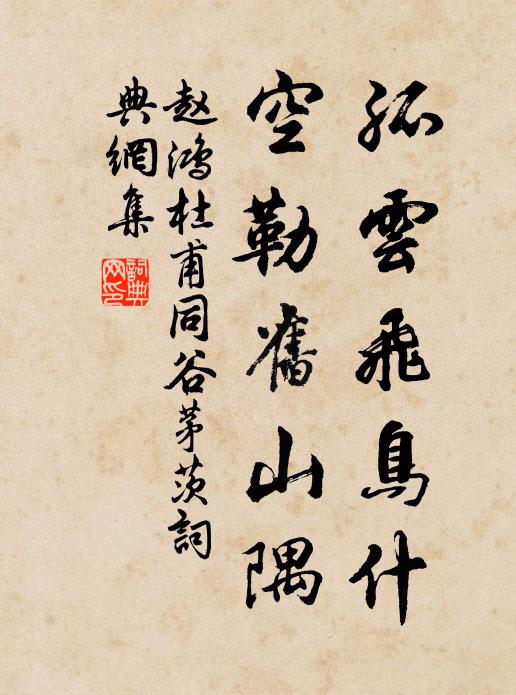 孤雲飛鳥什
空勒舊山隅
赵鴻杜甫同谷茅茨詞
典網集
詞典
网印